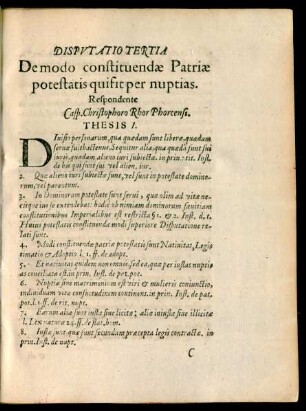 DISPVTATIO TERTIA
De modo constituendæ Patriæ
potestatis qui fit per nuptias.
Respondente
Casp. Christophoro Rhor Phorcensi.
THESIS I.
DIuisio personarum, qua quædam sunt liberæ, quædam
seruæ Sequitur alia, qua quædã sunt sui
iuris, quædam alieno iuri subiectæ. in princ. tit. Inst.
de his qui sunt sui vel alieni. iur.
2. Quæ alieno iuri subiectæ sunt, vel sunt in potestate domino-
rum, vel parentum.
3. In Dominorum potestate sunt serui, quo olim ad vitæ ne-
cisque ius se extendebat: hodiè ob nimiam dominorum sæuitiam
constitutionibus Imperialibus est restricta §1. & 2. Inst. d. t.
Huius potestatis constituendæ modi superiore Disputatione re-
lati sunt.
4. Modi constituendæ patriæ potestatis sunt Natiuitas, Legiti-
matio & Adoptio l. 1. ff. de adopt.
5. Et natiuitas quidem non omnis, sed ea, quæ per iustas nuptias
conciliata est in prin. Inst. de pat. pot.
6. Nuptiæ sunt matrimonium est viri & mulieris coniunctio,
indiuiduam vitæ consuetudinem continens. in prin. Inst. de pat.
pot. l. 1. ff. de rit. nupt.
7. Earum aliæ sunt iustæ siue licitæ; aliæ iniustæ siue illicitæ
l. Lex naturæ 24. ff. de stat. hom.
8. Iustæ sunt quæ sunt secundum præcepta legis contractæ. in
prin. Inst. de nupt.
C